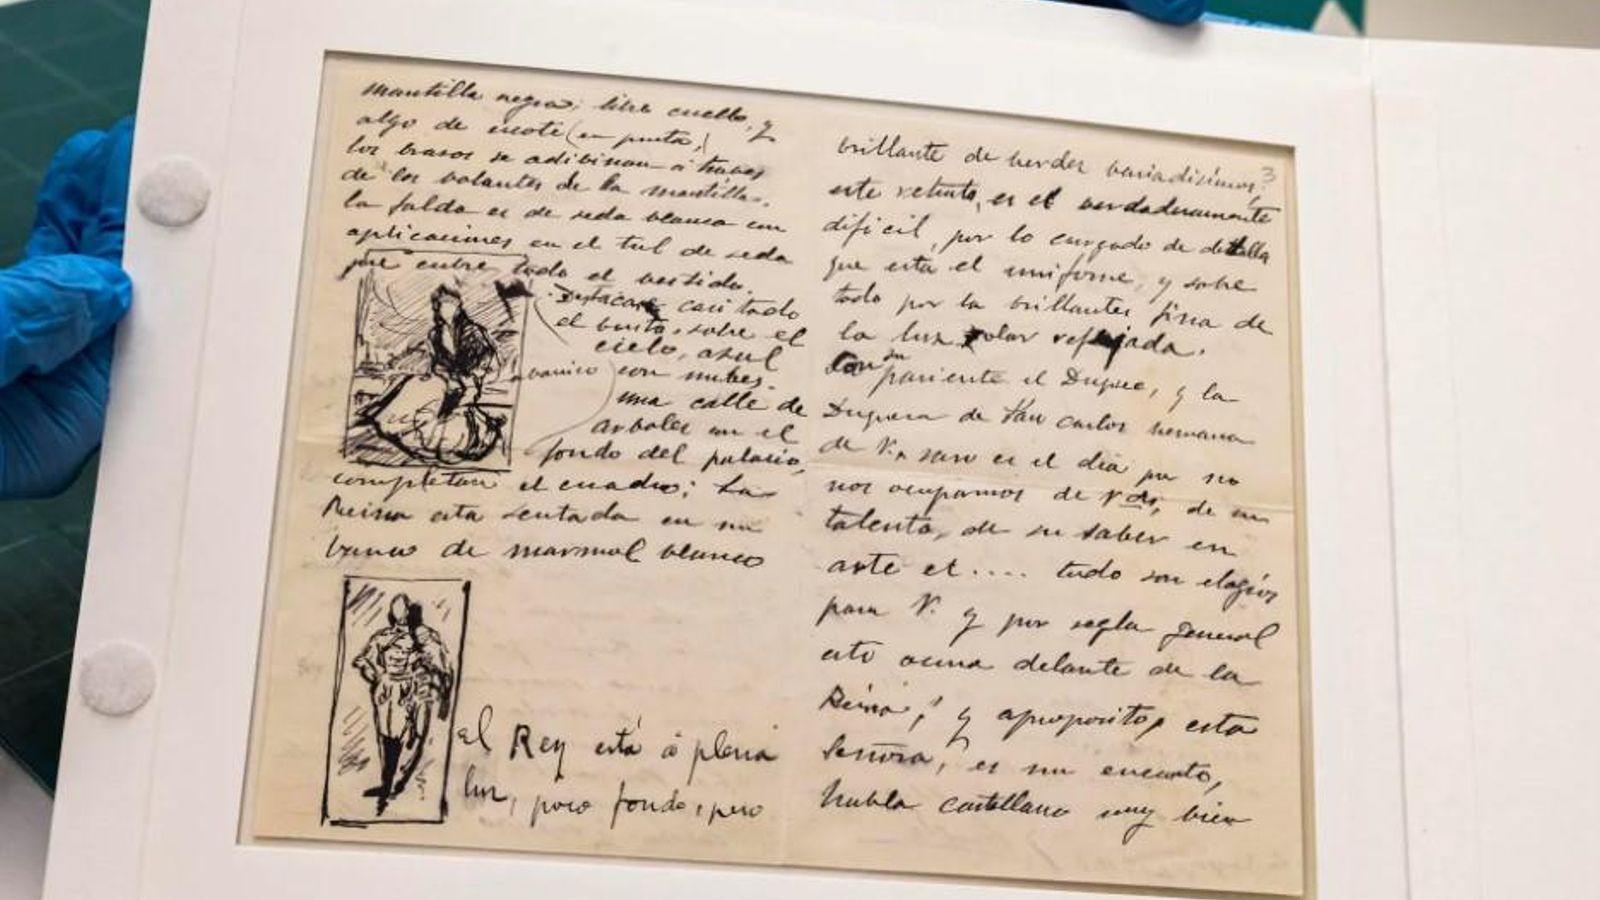 mantilla negra; libre cuello, y
algo de escote (en punta,)
los brasos se adibinan á traves
de los bolantes de la mantilla.
la falda es de seda blanca con
aplicaciones en el tul de seda
que cubre todo el vestido.
Destacase casi todo
el busto, sobre el
cielo, azul
abanico
con nubes.
una calle de
arboles en el
fondo del palacio,
completan el cuadro; La
Reina esta sentada en un
banco de marmol blanco
el Rey está á plena
luz, poco fondo, pero
3
brillante de verdes variadisimos;
este retrato, es el verdaderamente
dificil, por lo cargado de detalla
que esta el uniforme, y sobre
todo por la brillantes fisica de
la luz solar reflejada.
Con su pariente el Duque, y la
Duquesa de San Carlos hermana
de V., raro es el dia que no
nos ocupamos de Vds, de su
talento, de su saber en
arte et.... todo son elogios
para V. y por regla general
esto ocurre delante de la
Reina; y apropósito, esta
Señora, es un encanto,
habla castellano muy bien